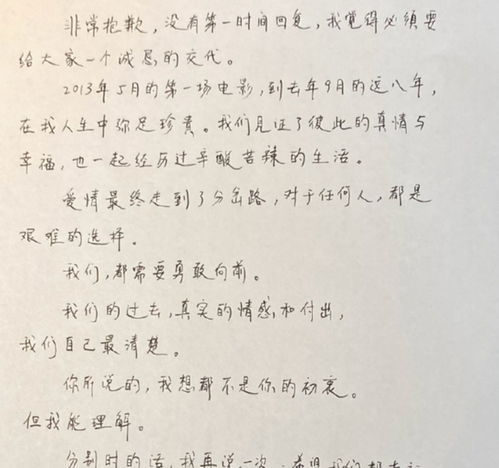 非常抱歉，没有第一时间回复，我觉得必须要
给大家一个诚恳的交代。
2013年5月的第一场电影，到去年9月的近八年，
在我人生中弥足珍贵。我们见证了彼此的真情与
幸福，也一起经历过辛酸苦辣的生活。
爱情最终走到了分岔路，对于任何人，都是
艰难的选择。
我们，都需要勇敢向前。
我们的过去，真实的情感，和付出，
我们自己最清楚。
你所说的，我想都不是你的初衷。
但我能理解。
分别时的话，我再说一次，希望我们都